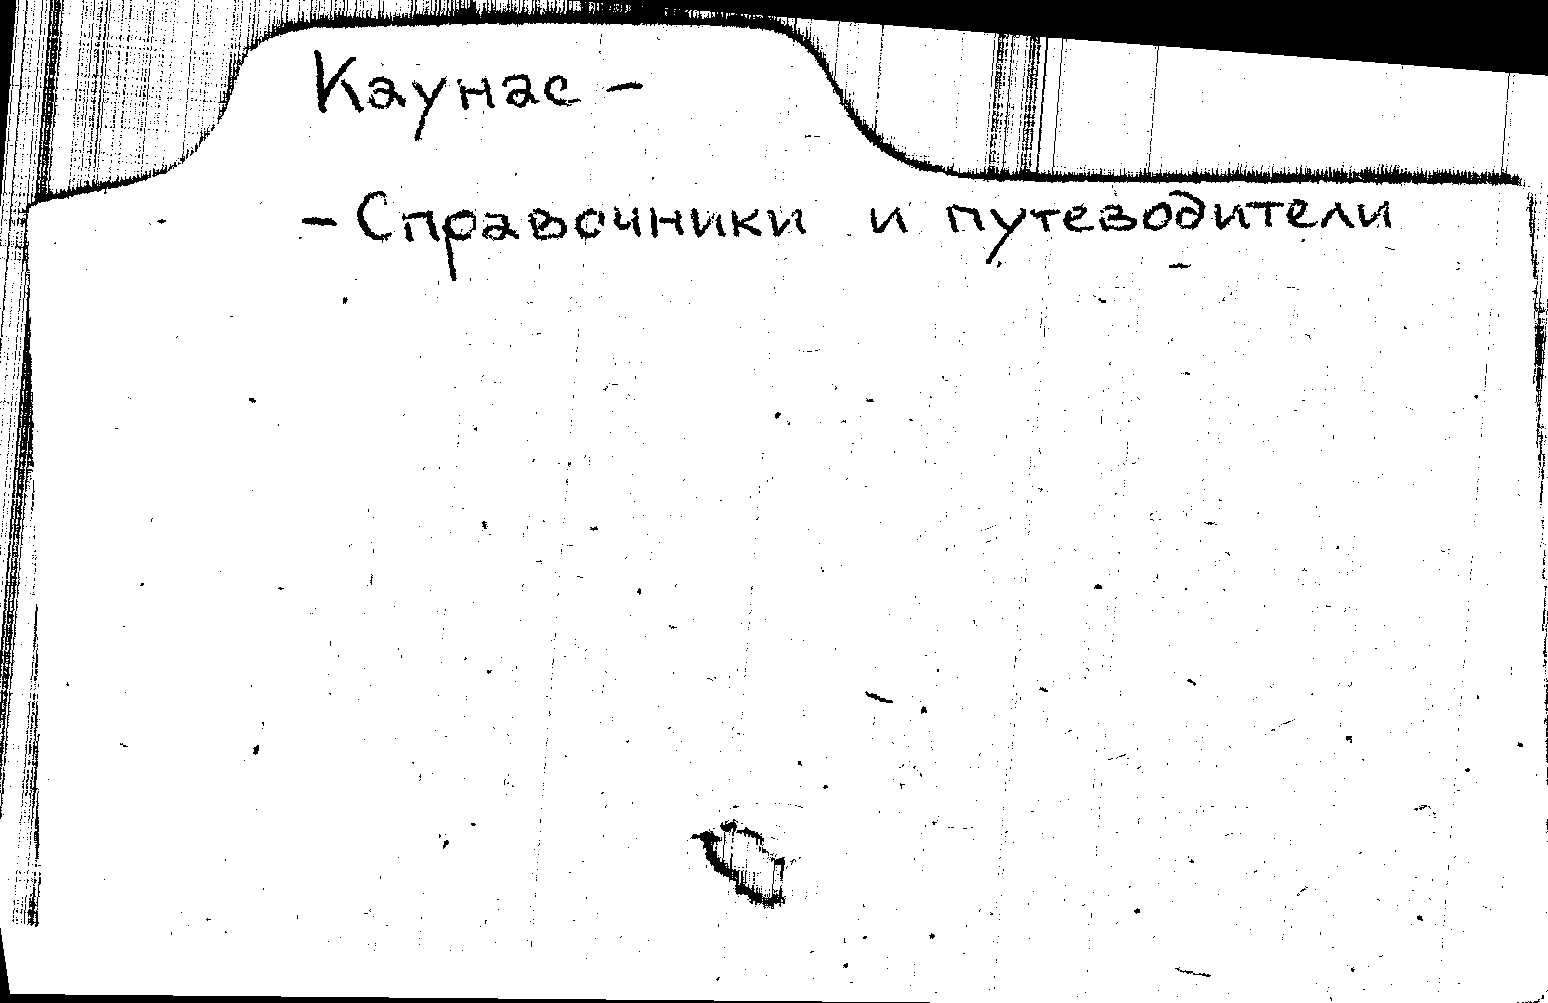 Каунас –
– Справочники и путеводители